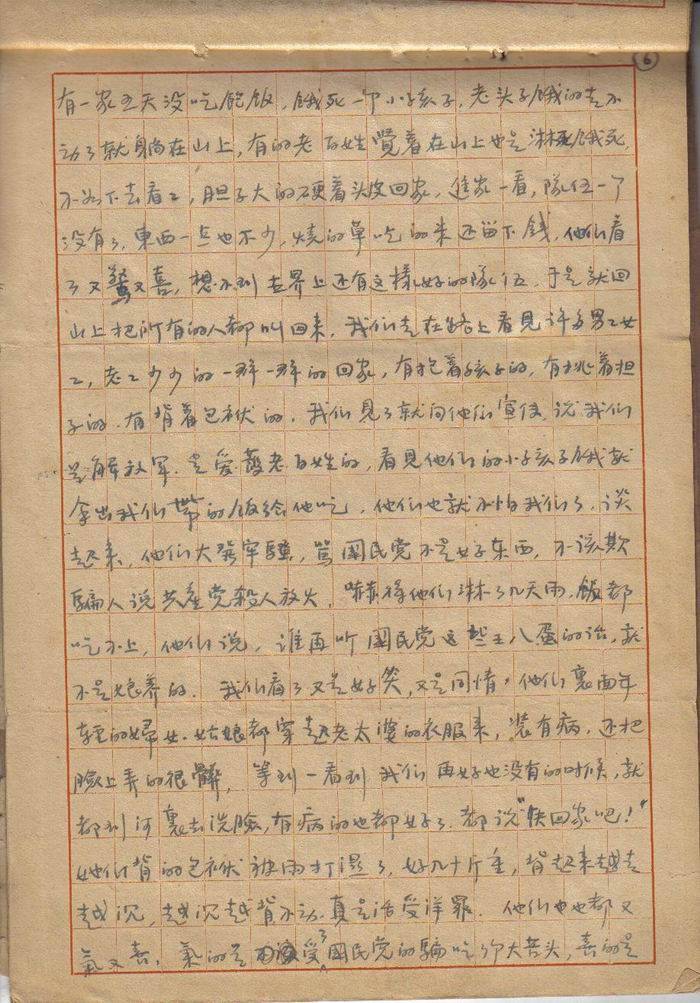 6
有一家五天没吃飽飯，餓死一个小孩子，老头子餓的走不
动了就躺在山上，有的老百姓覺着在山上也是淋死餓死，
不如下去看看，胆子大的硬着头皮回家，進家一看，隊伍一个
没有了，東西一点也不少，燒的草吃的来还留下錢，他们看
了又驚又喜，想不到世界上还有这樣好的隊伍，于是就回
山上把所有的人都叫回来，我们走在路上看見许多男男女
女，老老少少的一群一群的回家，有抱着孩子的，有挑着担
子的，有背着包袱的，我们見了就向他们宣传，说我们
是解放军，是爱護老百姓的，看見他们的小孩子餓就
拿出我们带的飯給他吃，他们也就不怕我们了，谈
起来，他们大發牢騷，罵國民党不是好东西，不该欺
騙人说共產党殺人放火，嚇得他们淋了几天雨，飯都
吃不上，他们说，谁再听國民党这些王八蛋的话，就
不是娘养的。我们看了又是好笑，又是同情，他们裏面年
轻的婦女，姑娘都穿起老太婆的衣服来，装有病，还把
臉上弄的很髒，等到一看到我们再好也没有的时候，就
都到河裏去洗臉，有病的也都好了，都说“快回家吧！”
她们背的包袱被雨打濕了，好几十斤重，背起来越走
越沉，越沉越背不动，真是活受洋罪。他们也都又
氣又喜，氣的是受了國民党的騙吃了大苦头，喜的是